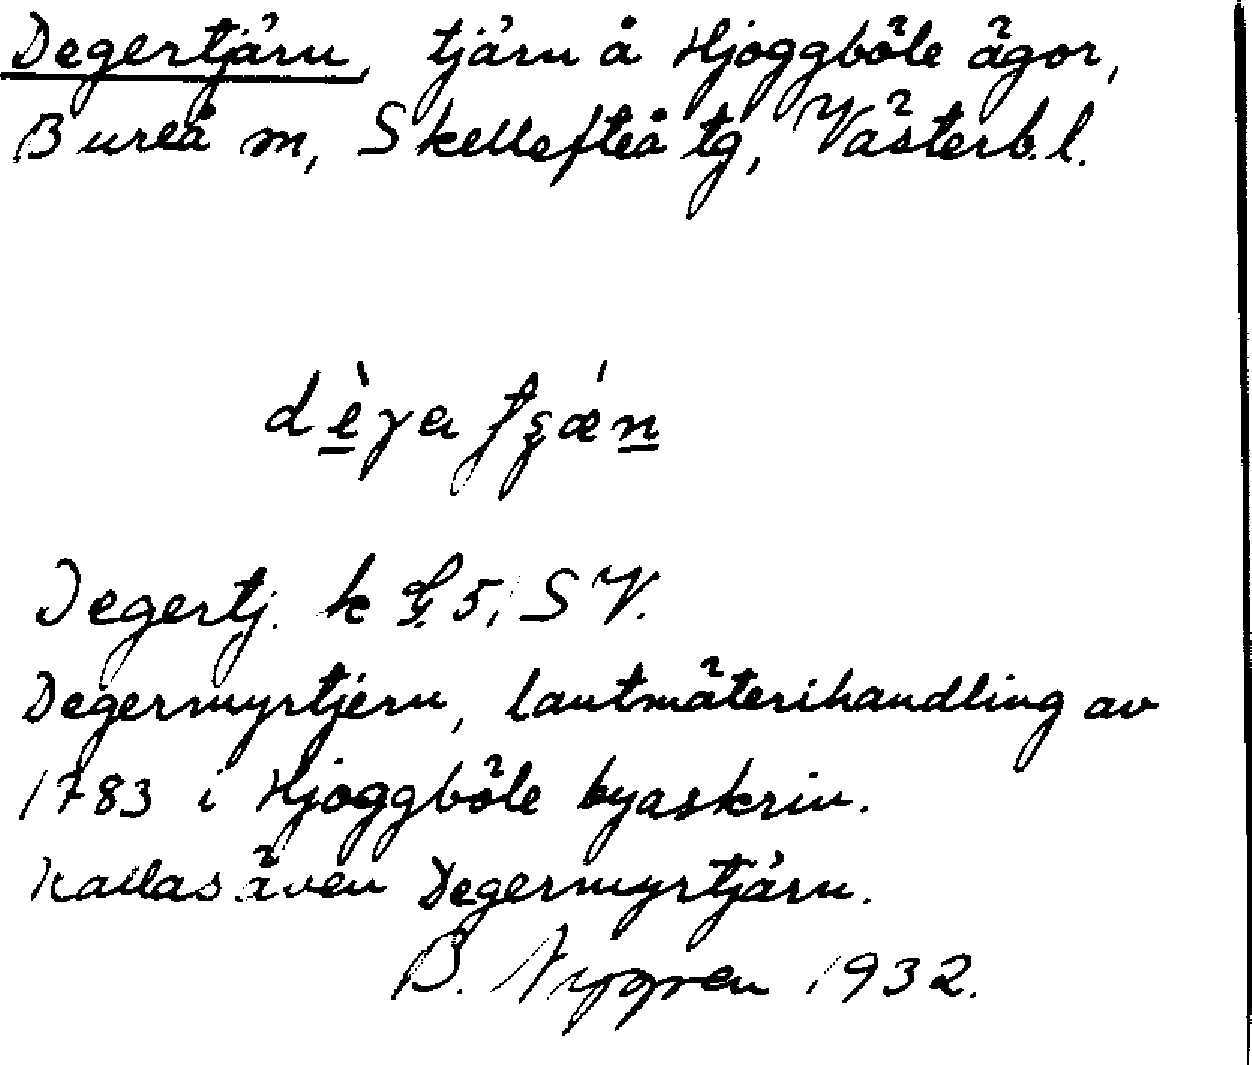 Degertjärn, tjärn å Hjoggböle ägor,
Bureå m, Skellefteå tg, Västerb. l.
Degertj. k 5, SV.
Degermyrtjern, lantmäterihandling av
1783 i Hjoggböle byaskrin.
Kallas även Degermyrtjärn.
B. Nygren 1932.